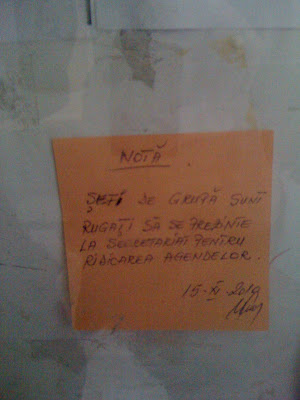 NOTĂ
ȘEFI DE GRUPĂ SUNT
RUGAȚI SĂ SE PREZINTE
LA SECRETARIAT PENTRU
RIDICAREA AGENDELOR.
15-XI-2010